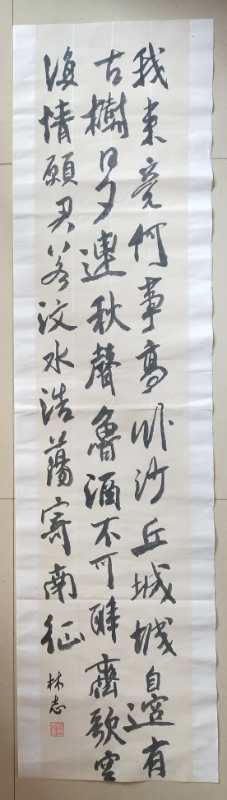 我來竟何事高臥沙丘城城邊有
古樹日夕連秋聲魯酒不可醉齊歌空
復情願君若汶水浩蕩寄南征
林志